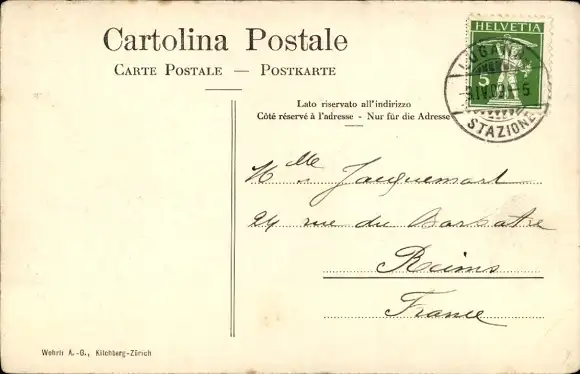 Cartolina Postale
CARTE POSTALE — POSTKARTE
HELVETIA
5
LUGANO
9.IV.09.-5
STAZIONE
Lato riservato all'indirizzo
Côté réservé à l'adresse - Nur für die Adresse
Mlle Jacquemart
24 rue du
Reims
France
Wehrli A.-G., Kilchberg-Zürich